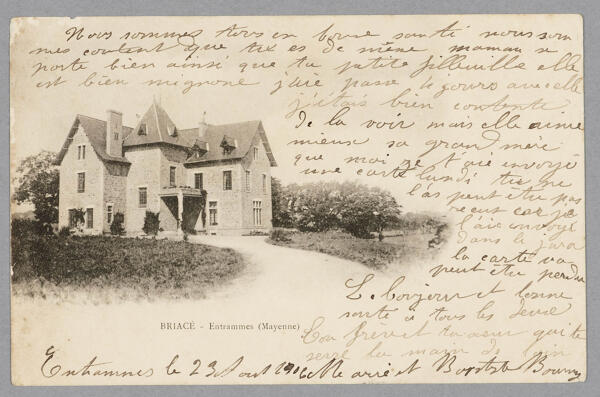 Nous sommes tous en bone santé nous som
mes content que tu es de même maman se
porte bien ainsi que ta petite filleuille elle
est bien mignone j'aie passé 4 jours avec elle
j'étais bien contente
de la voir mais elle aime
mieux sa grand mère
que moi je t'aie envoyé
une carte lundi tu ne
l'as peut être pas
recut car je
l'aie envoyé
dans le
la carte va
peut être perdu
Le bonjour et bonne
santé a tous les deux
Ton frère et ta seur qui te
serre la main de loin
BRIACÉ - Entrammes (Mayenne)
Entrammes le 23 Aout 1906 Marie et Baptiste